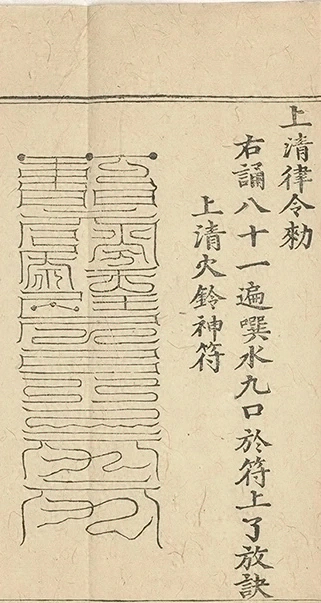 上清律令勑
右誦八十一遍噀水九口於符上了放訣
上清火鈴神符